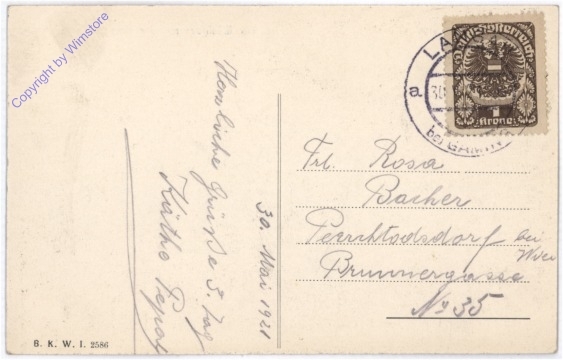 Copyright by Wimstore
Deutschösterreich
1
Krone
LA
a
30
bei GAMI
Herzliche Grüße s. Tag
Käthe
30. Mai 1921
Frl. Rosa
Bacher
Perchtoldsdorf bei
Wien
Brunnergasse
No 35
B. K. W. I. 2586